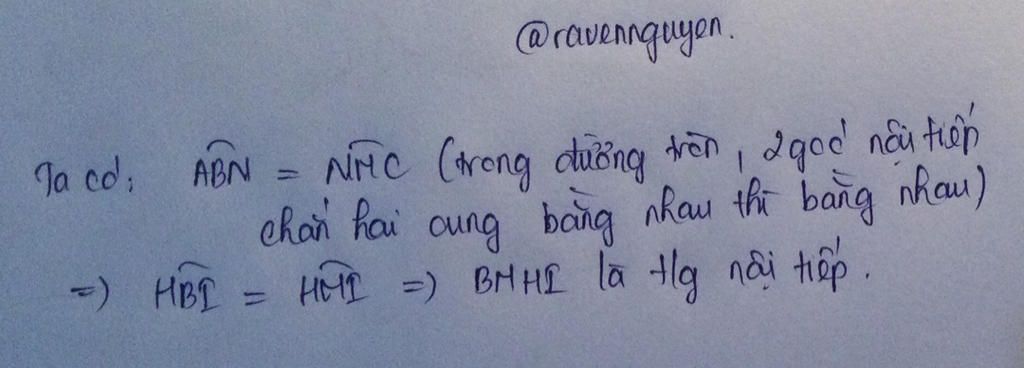 @ravennguyen.
Ta có: ABN = NMC (trong đường tròn, 2 góc nội tiếp
chắn hai cung bằng nhau thì bằng nhau)
=) HBI = HMI =) BMHI là tlg nội tiếp.